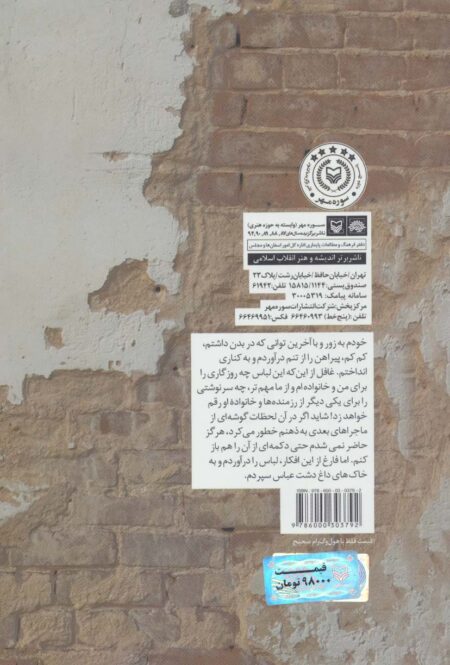 سوره مهر
سوره مهر (وابسته به حوزه هنری)
ناشر برگزیده سال‌های ۸۷، ۸۸، ۸۹، ۹۰، ۹۴
دفتر فرهنگ و مطالعات پایداری اداره کل امور استان‌ها و مجلس
ناشر برتر اندیشه و هنر انقلاب اسلامی
تهران/خیابان حافظ/خیابان رشت/پلاک ۲۳
صندوق پستی: ۱۵۸۱۵/۱۱۴۴ تلفن: ۶۱۹۴۲
سامانه پیامک: ۳۰۰۰۵۳۱۹
مرکز پخش: شرکت انتشارات سوره مهر
تلفن: (پنج خط) ۶۶۴۶۰۹۹۳ فکس: ۶۶۴۶۹۹۵۱
خودم به زور و با آخرین توانی که در بدن داشتم،
کم کم، پیراهن را از تنم درآوردم و به کناری
انداختم. غافل از این که این لباس چه روزگاری را
برای من و خانواده‌ام و از ما مهم تر، چه سرنوشتی
را برای یکی دیگر از رزمنده‌ها و خانواده او رقم
خواهد زد! شاید اگر در آن لحظات گوشه‌ای از
ماجراهای بعدی به ذهنم خطور می‌کرد، هرگز
حاضر نمی شدم حتی دکمه‌ای از آن را هم باز
کنم. اما فارغ از این افکار، لباس را درآوردم و به
خاک‌های داغ دشت عباس سپردم.
ISBN: 978-600-03-0379-2
9 786000 303792
قیمت فقط با هولوگرام صحیح
قیمت
۹۸۰۰۰ تومان